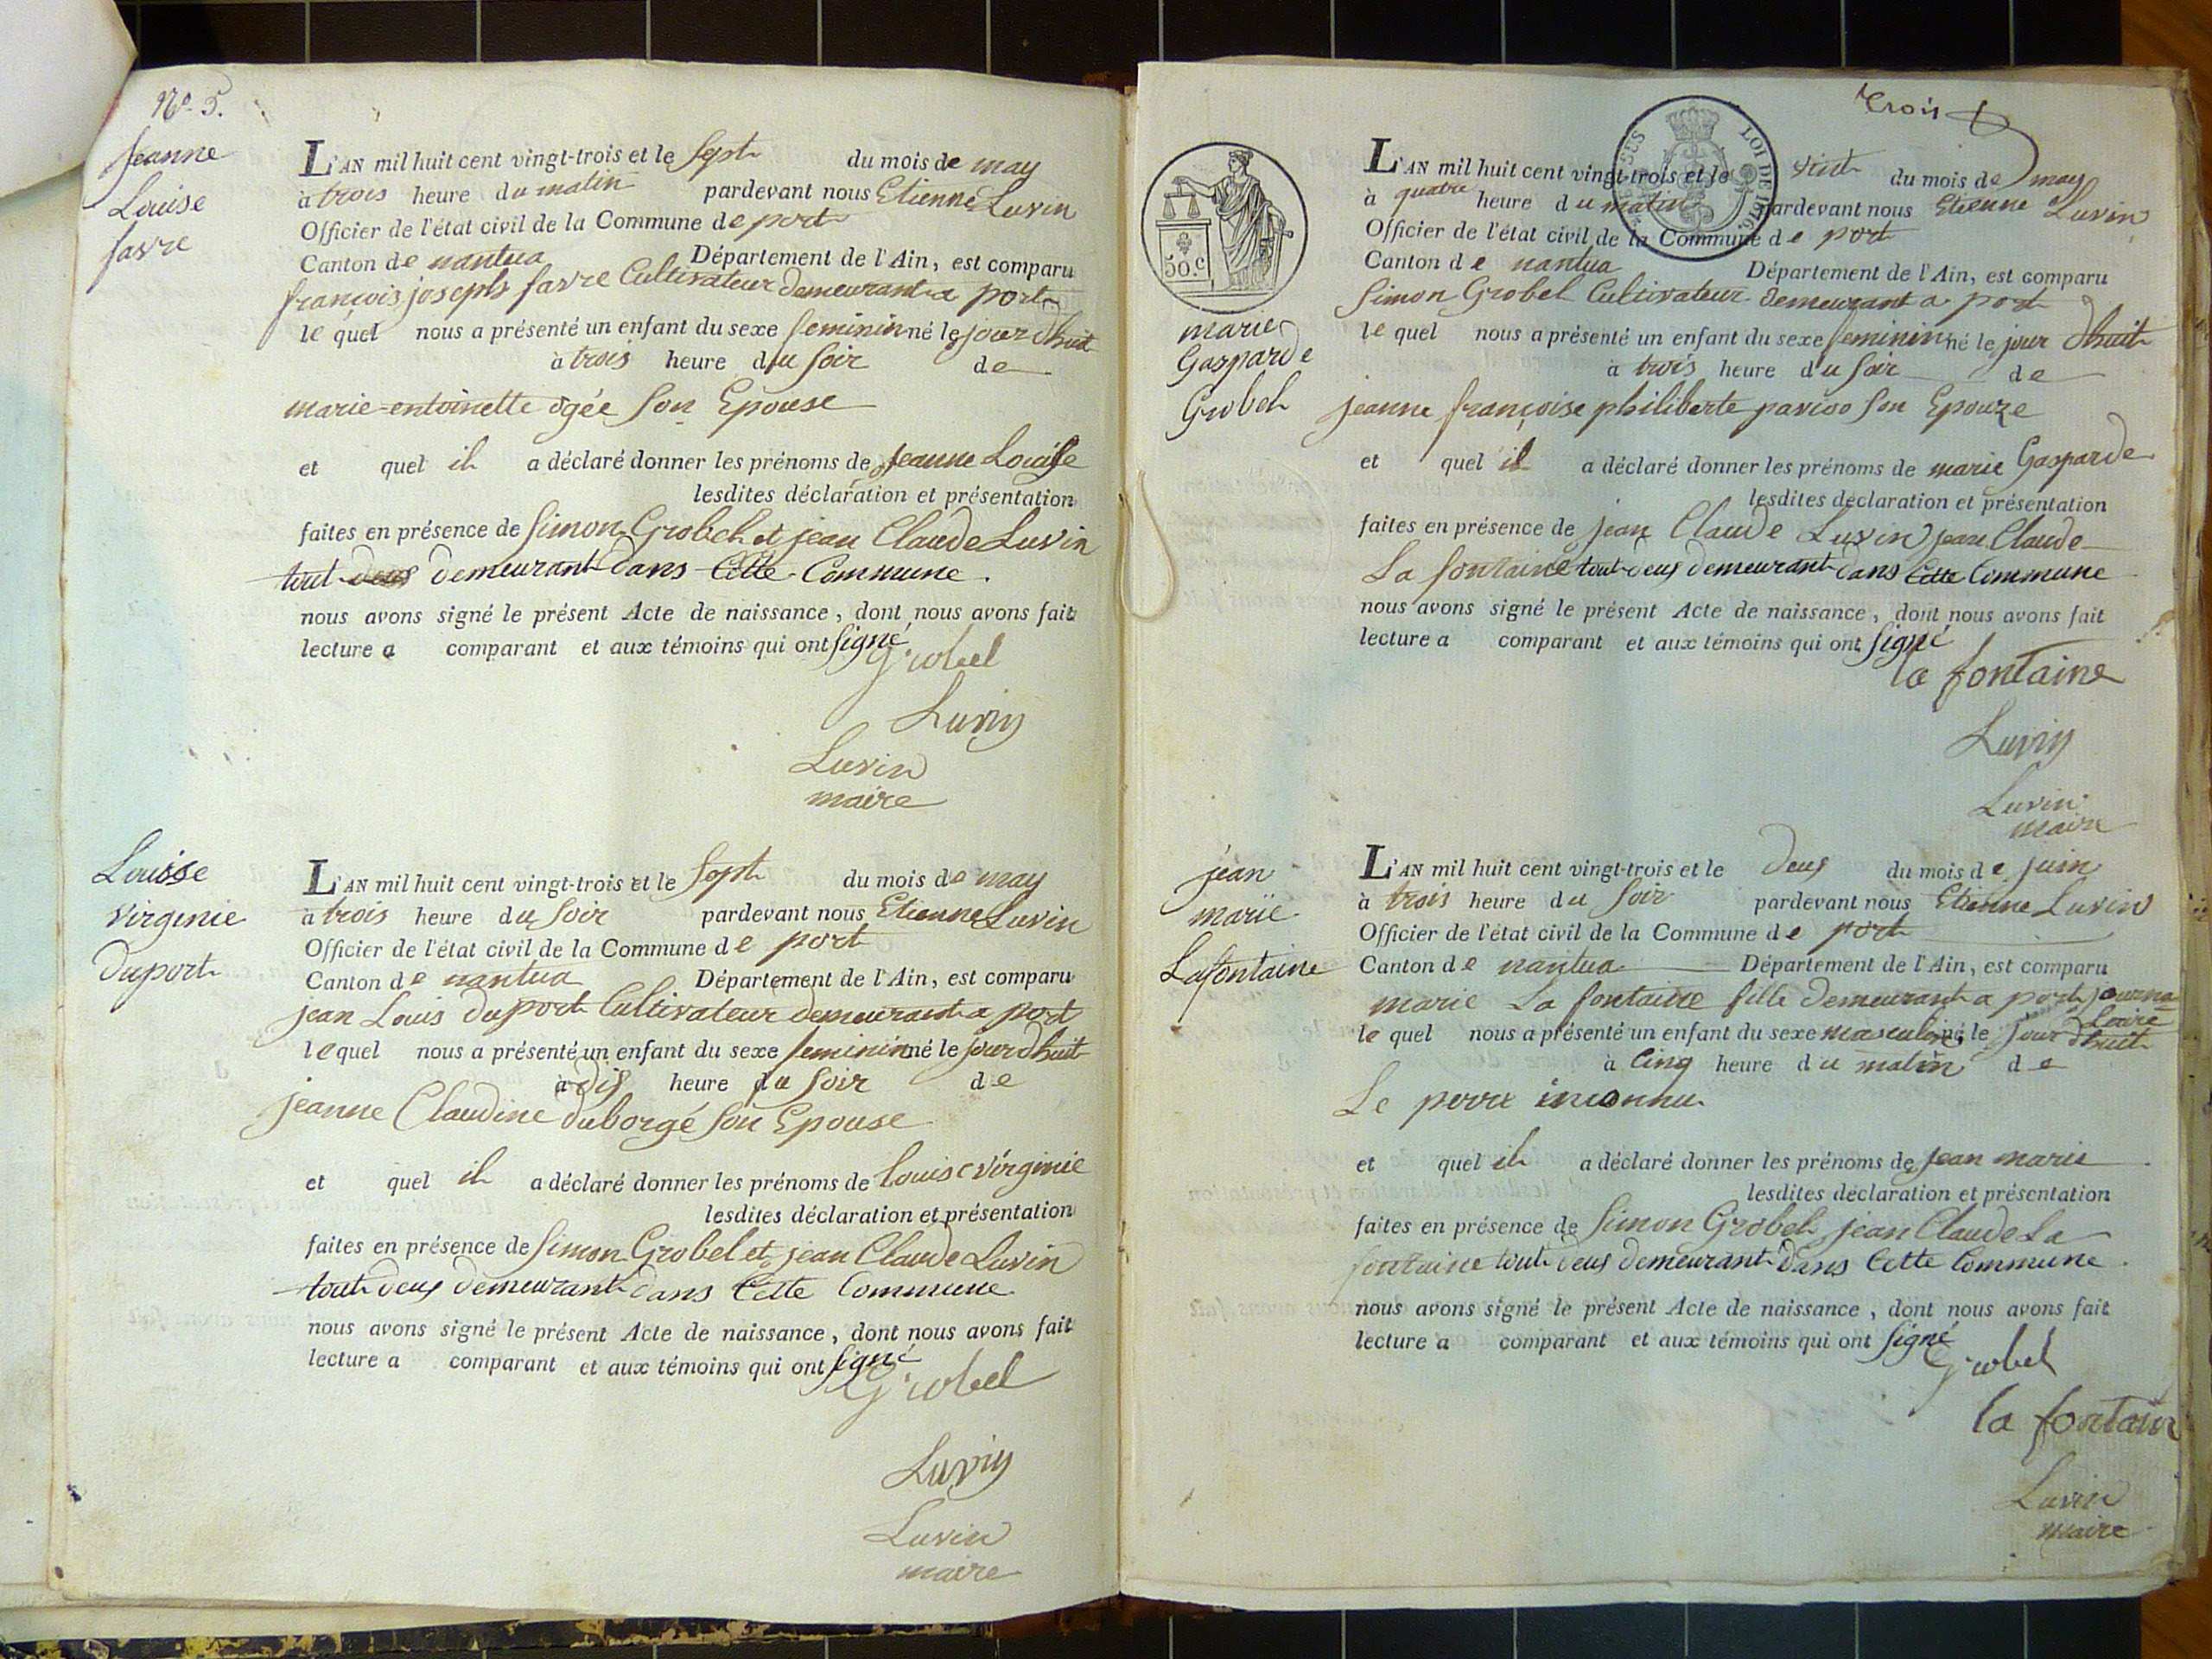 No. 5.
Jeanne
Louise
favre
L'AN mil huit cent vingt-trois et le Sept du mois de may
à trois heure du matin pardevant nous Etienne Luvin
Officier de l'état civil de la Commune de port
Canton de nantua Département de l'Ain, est comparu
françois joseph favre Cultivateur demeurant a port
le quel nous a présenté un enfant du sexe feminin né le jour dhuit
à trois heure du soir de
marie entoinette ogée Son Epouse
et quel il a déclaré donner les prénoms de Jeanne Louise
lesdites déclaration et présentation
faites en présence de Simon Grobel et jean Claude Luvin
tout deus demeurant dans Cette Commune.
nous avons signé le présent Acte de naissance, dont nous avons fait
lecture a comparant et aux témoins qui ont Signé
Grobel
Luvin
Luvin
maire
Louisse
Virginie
duport
L'AN mil huit cent vingt-trois et le Sept du mois de may
à trois heure du Soir pardevant nous Etienne Luvin
Officier de l'état civil de la Commune de port
Canton de nantua Département de l'Ain, est comparu
jean Louis duport Cultivateur demeurant a port
le quel nous a présenté un enfant du sexe feminin né le jour dhuit
à dis heure du Soir de
jeanne Claudine duborgé Son Epouse
et quel il a déclaré donner les prénoms de Louise virginie
lesdites déclaration et présentation
faites en présence de Simon Grobel et jean Claude Luvin
tout deus demeurant dans Cette Commune
nous avons signé le présent Acte de naissance, dont nous avons fait
lecture a comparant et aux témoins qui ont signé
Grobel
Luvin
Luvin
maire
Trois
LOI DE 1816.
50.c
marie
Gasparde
Grobel
L'AN mil huit cent vingt-trois et le vint du mois de may
à quatre heure du matin pardevant nous Etienne Luvin
Officier de l'état civil de la Commune de port
Canton de nantua Département de l'Ain, est comparu
Simon Grobel Cultivateur demeurant a port
le quel nous a présenté un enfant du sexe feminin né le jour dhuit
à trois heure du Soir de
jeanne françoise philiberte Son Epouze
et quel il a déclaré donner les prénoms de marie Gasparde
lesdites déclaration et présentation
faites en présence de jean Claude Luvin jean Claude
La fontaine tout deus demeurant dans Cette Commune
nous avons signé le présent Acte de naissance, dont nous avons fait
lecture a comparant et aux témoins qui ont Signé
la fontaine
Luvin
Luvin
maire
jean
marie
Lafontaine
L'AN mil huit cent vingt-trois et le deus du mois de juin
à trois heure du Soir pardevant nous Etienne Luvin
Officier de l'état civil de la Commune de port
Canton de nantua Département de l'Ain, est comparu
marie La fontaine fille demeurant a port journa
laire
le quel nous a présenté un enfant du sexe masculin né le jour dhuit
à Cinq heure du matin de
Le perre inconnu
et quel il a déclaré donner les prénoms de jean marie
lesdites déclaration et présentation
faites en présence de Simon Grobel, jean Claude La
fontaine tout deus demeurant dans Cette Commune.
nous avons signé le présent Acte de naissance, dont nous avons fait
lecture a comparant et aux témoins qui ont Signé
Grobel
la fontaine
Luvin
maire